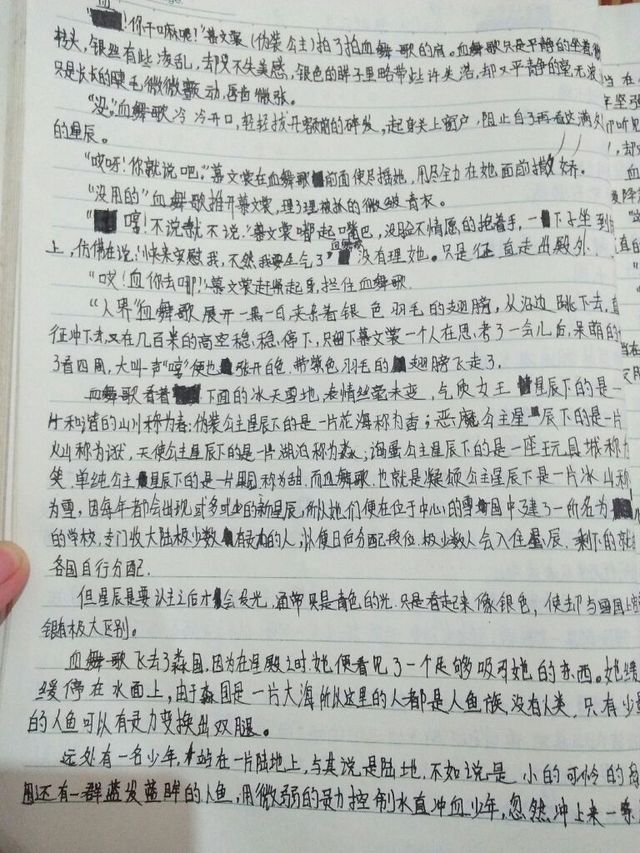 ！你干嘛呢！”慕文裳（伪装公主）拍了拍血舞歌的肩。血舞歌只是平静的坐着
枕头，银丝有些凌乱，却又不失美感，银色的眸子里略带些许失落，却又平静的毫无波
只是长长的睫毛微微颤动，唇齿微张。
“没。”血舞歌冷冷开口，轻轻拨开额前的碎发，起身关上窗户，阻止自己再看这满
的星辰。
“哎呀！你就说吧。”慕文裳在血舞歌前面使尽摇她，用尽全力在她面前撒娇。
“没用的”血舞歌推开慕文裳，理了理被扒的微皱青衣。
“哼！不说就不说。”慕文裳嘟起嘴巴，没脸不情愿的抱着手，一下子坐到
上，仿佛在说：快来安慰我，不然我要生气了，血舞歌没有理她。只是径直走出殿外.
“哎！血你去哪！”慕文裳赶紧起身，拦住血舞歌.
“人界”血舞歌展开一黑一白夹杂着银色羽毛的翅膀，从沿边跳下去，直
征冲下去，又在几百米的高空稳稳停下，只留下慕文裳一个人在思考了一会儿后，呆萌的
了看四周，大叫一声“喂”便也张开白色带紫色羽毛的翅膀飞走了.
血舞歌看着下面的冰天雪地，表情丝毫未变，气质女王星辰下的是一
片和谐的山川称为春；伪装公主星辰下的是一片花海称为香；恶魔公主星辰下的是一片
火山称为，天使公主星辰下的是一片湖泊称为淼；淘蛋公主星辰下的是一座玩具城称为
笑.单纯公主星辰下的是一片果园称为甜.而血舞歌.也就是凝颂公主星辰下是一片冰山称
为雪，因每年都会出现或多或少的新星辰，所以她们便在位于中心的雪国中建了一所名为
的学校，专门收大陆极少数有灵力的人，以便日后分配段位.极少数人会入住星辰.剩下的就
各国自行分配.
但星辰是要认主之后才会发光，通常只是青色的光.只是看起来像银色，使却与
银有极大区别。
血舞歌飞去了淼国，因为在星殿之时她便看见了一个足够吸引她的东西。她缓
缓停在水面上，由于淼国是一片大海所以这里的人都是人鱼族，没有人类，只有少
的人鱼可以有灵力变换出双腿。
远处有一名少年，站在一片陆地上，与其说是陆地，不如说是小的可怜的
周还有一群蓝发蓝眸的人鱼，用微弱的灵力控制水直冲血少年，忽然冲上来一